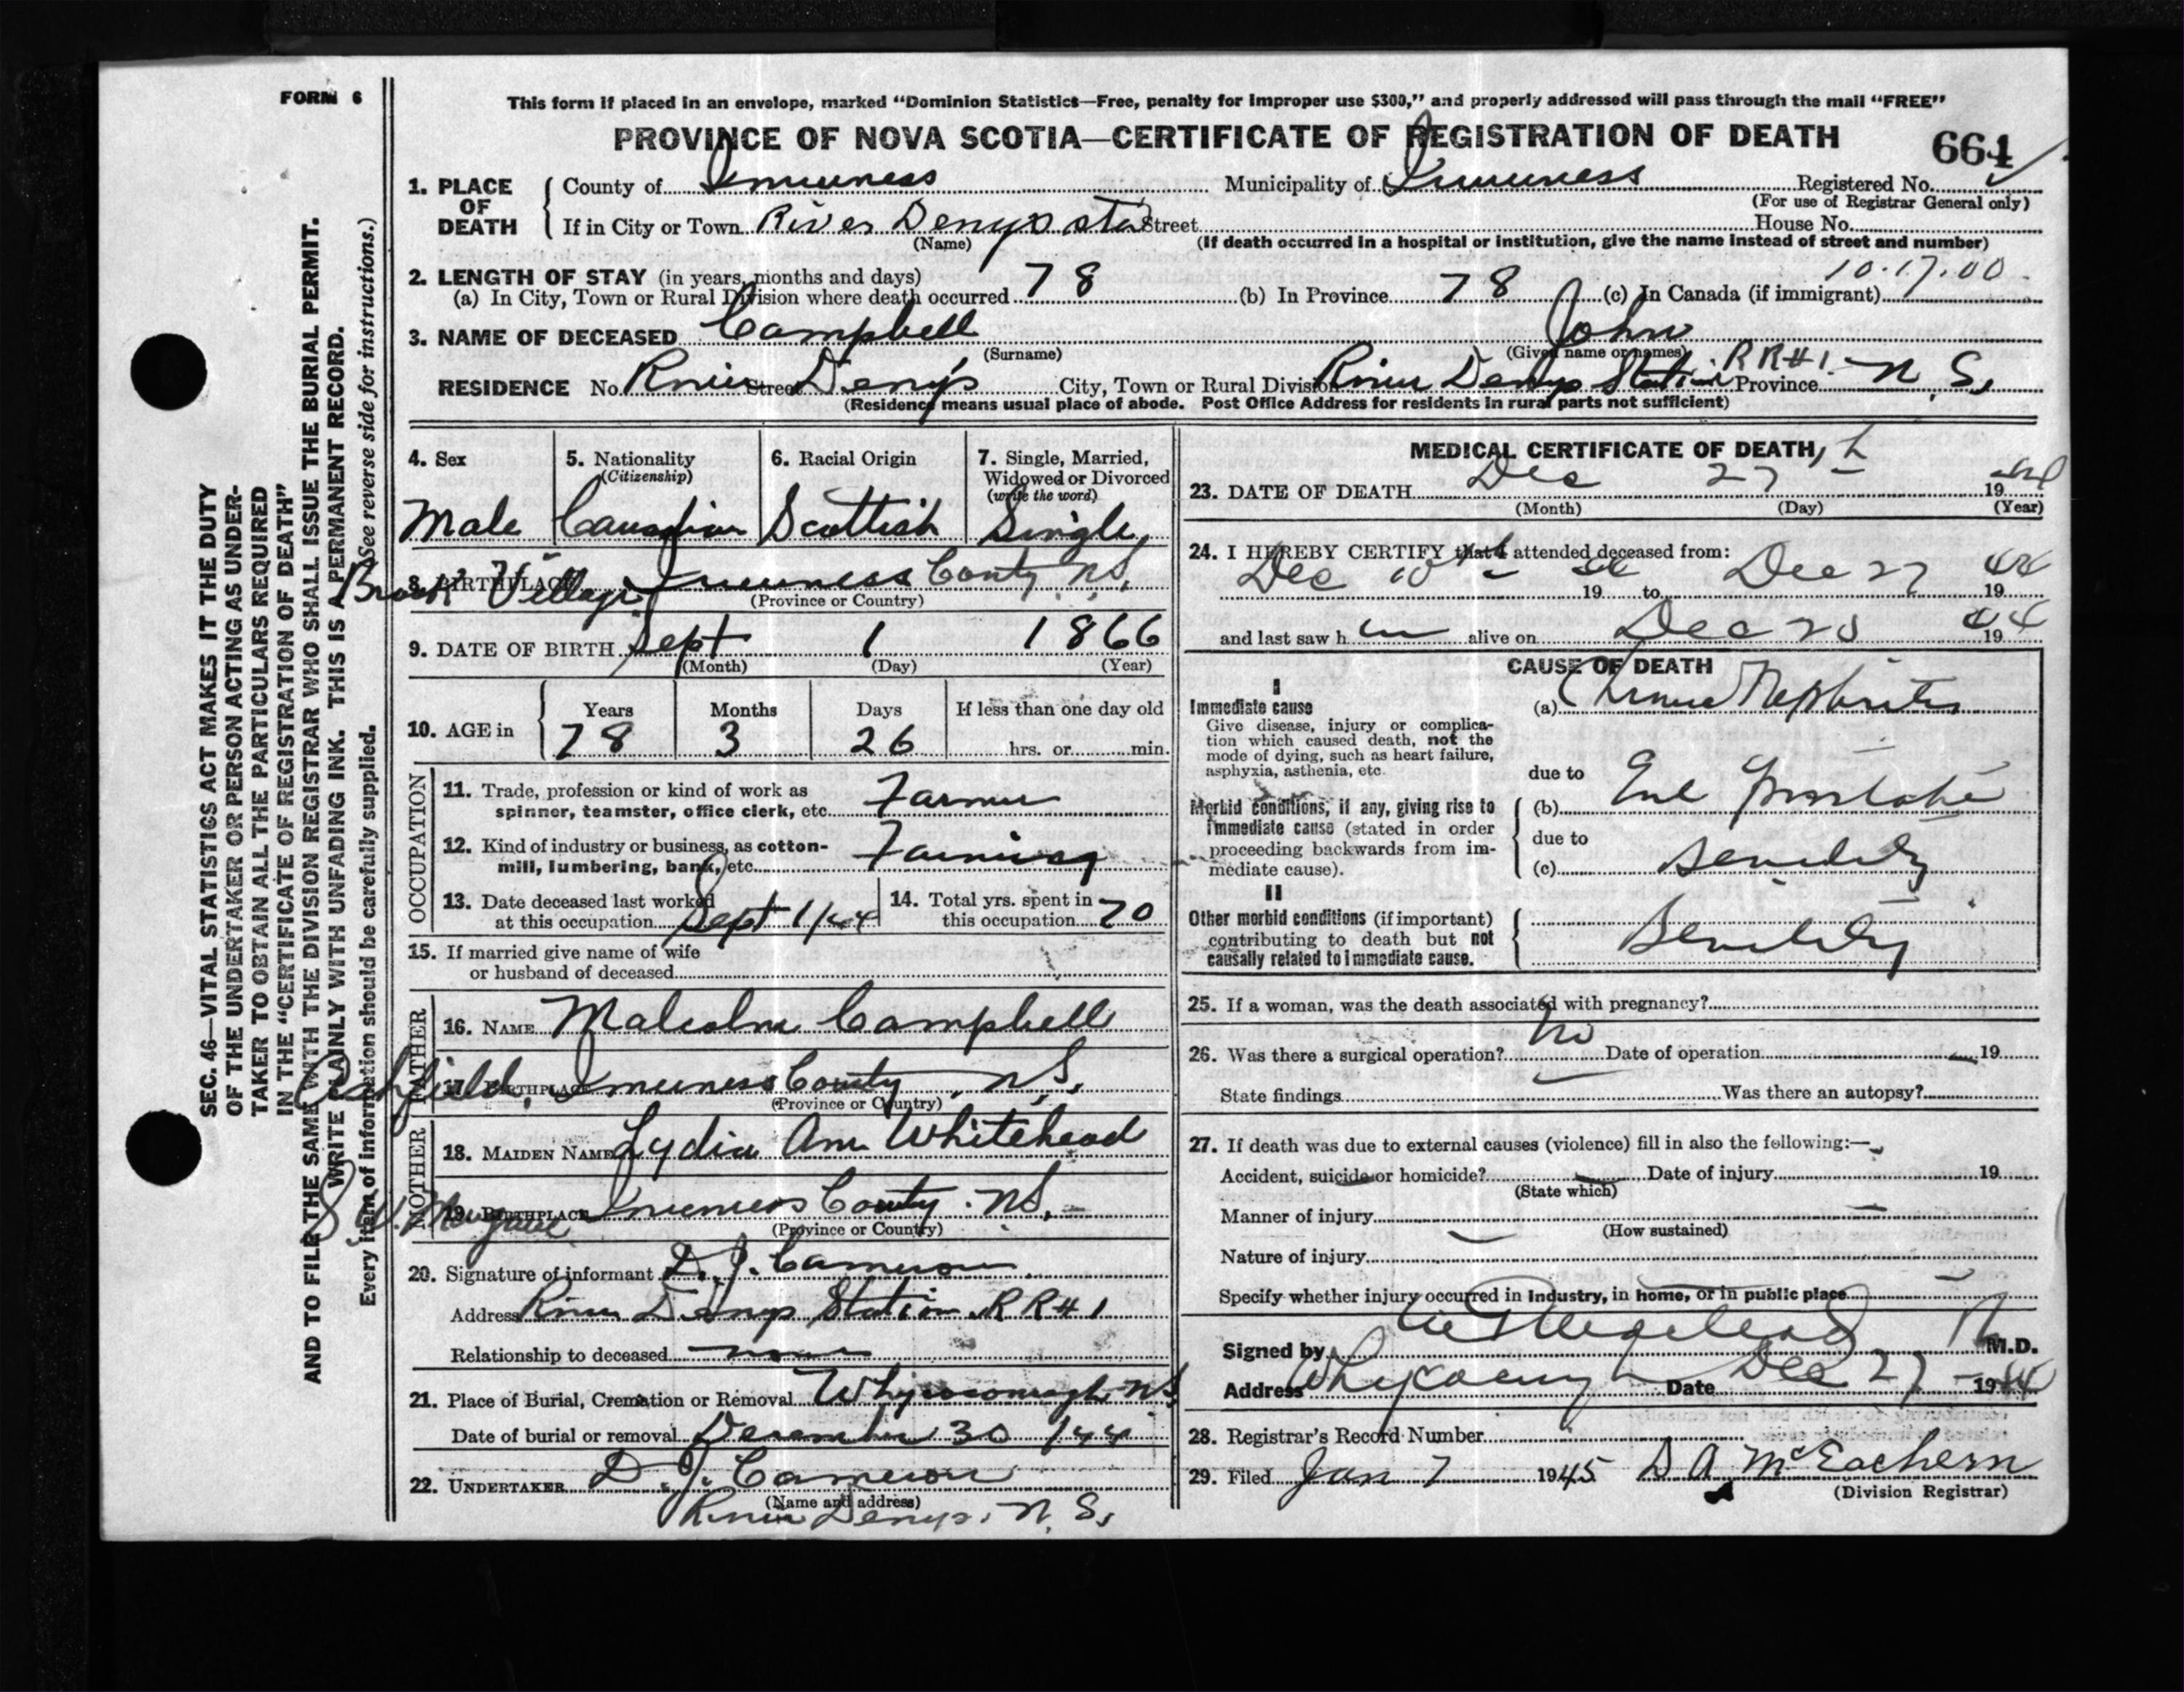 FORM 6
This form if placed in an envelope, marked "Dominion Statistics—Free, penalty for improper use $300," and properly addressed will pass through the mail "FREE"
PROVINCE OF NOVA SCOTIA—CERTIFICATE OF REGISTRATION OF DEATH
664
1. PLACE OF DEATH
County of Inverness Municipality of Inverness Registered No.
(For use of Registrar General only)
If in City or Town River Denys Sta Street House No.
(Name) (If death occurred in a hospital or institution, give the name instead of street and number)
2. LENGTH OF STAY (in years, months and days) 10.17.00
(a) In City, Town or Rural Division where death occurred 78 (b) In Province 78 (c) In Canada (if immigrant)
3. NAME OF DECEASED Campbell John
(Surname) (Given name or names)
RESIDENCE No. River Street Denys City, Town or Rural Division River Denys Station RR#1 Province N.S.
(Residence means usual place of abode. Post Office Address for residents in rural parts not sufficient)
4. Sex 5. Nationality (Citizenship) 6. Racial Origin 7. Single, Married, Widowed or Divorced (write the word)
Male Canadian Scottish Single
8. BIRTHPLACE Brook Village Inverness County N.S.
(Province or Country)
9. DATE OF BIRTH Sept 1 1866
(Month) (Day) (Year)
10. AGE in Years Months Days If less than one day old
78 3 26 hrs. or min.
OCCUPATION
11. Trade, profession or kind of work as spinner, teamster, office clerk, etc. Farmer
12. Kind of industry or business, as cotton-mill, lumbering, bank, etc. Farming
13. Date deceased last worked at this occupation Sept 1/44
14. Total yrs. spent in this occupation 70
15. If married give name of wife or husband of deceased
FATHER
16. NAME Malcolm Campbell
17. BIRTHPLACE Ashfield, Inverness County N.S.
(Province or Country)
MOTHER
18. MAIDEN NAME Lydia Ann Whitehead
19. BIRTHPLACE S.W. Margaree Inverness County N.S.
(Province or Country)
20. Signature of informant D. J. Cameron
Address River Denys Station RR#1
Relationship to deceased none
21. Place of Burial, Cremation or Removal Whycocomagh N.S.
Date of burial or removal December 30 /44
22. UNDERTAKER D. J. Cameron
(Name and address)
River Denys, N.S.
MEDICAL CERTIFICATE OF DEATH
23. DATE OF DEATH Dec 27th 1944
(Month) (Day) (Year)
24. I HEREBY CERTIFY that I attended deceased from:
Dec 10th 1944 to Dec 27 1944
and last saw him alive on Dec 1944
CAUSE OF DEATH
I
Immediate cause
Give disease, injury or complication which caused death, not the mode of dying, such as heart failure, asphyxia, asthenia, etc.
(a) Chronic Nephritis
due to
Morbid conditions, if any, giving rise to immediate cause (stated in order proceeding backwards from immediate cause).
(b) Enl Prostate
due to
(c) Senility
II
Other morbid conditions (if important) contributing to death but not causally related to immediate cause.
Senility
25. If a woman, was the death associated with pregnancy?
26. Was there a surgical operation? No Date of operation 19
State findings Was there an autopsy?
27. If death was due to external causes (violence) fill in also the following:—
Accident, suicide or homicide? Date of injury 19
(State which)
Manner of injury
(How sustained)
Nature of injury
Specify whether injury occurred in industry, in home, or in public place
Signed by M.D.
Address Date Dec 27 1944
28. Registrar's Record Number
29. Filed Jan 7 1945 D A McEachern
(Division Registrar)
SEC. 46—VITAL STATISTICS ACT MAKES IT THE DUTY
OF THE UNDERTAKER OR PERSON ACTING AS UNDER-
TAKER TO OBTAIN ALL THE PARTICULARS REQUIRED
IN THE "CERTIFICATE OF REGISTRATION OF DEATH"
AND TO FILE THE SAME WITH THE DIVISION REGISTRAR WHO SHALL ISSUE THE BURIAL PERMIT.
WRITE PLAINLY WITH UNFADING INK. THIS IS A PERMANENT RECORD.
Every item of information should be carefully supplied. (See reverse side for instructions.)